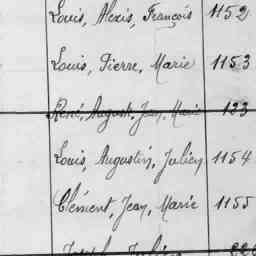 Louis, Alexis, François 1152
Louis, Pierre, Marie 1153
René, Auguste, Jean, Marie 123
Louis, Augustin, Julien 1154
Clément, Jean, Marie 1155
Joseph, Julien